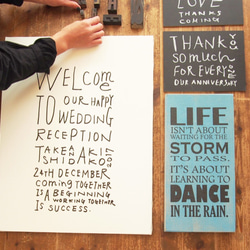 WELCOME
TO OUR HAPPY
WEDDING
RECEPTION
TAKA AKI
ISHIBAKO
2017
24TH DECEMBER
coming TOGETHER
IS A BEGINNING
WORKING TOGETHER
IS SUCCESS.
LOVE
THANKS
COMING
THANK YOU
so much
FOR EVERY
OUR ANNIVERSARY
LIFE
ISN'T ABOUT
WAITING FOR THE
STORM
TO PASS.
IT'S ABOUT
LEARNING TO
DANCE
IN THE RAIN.